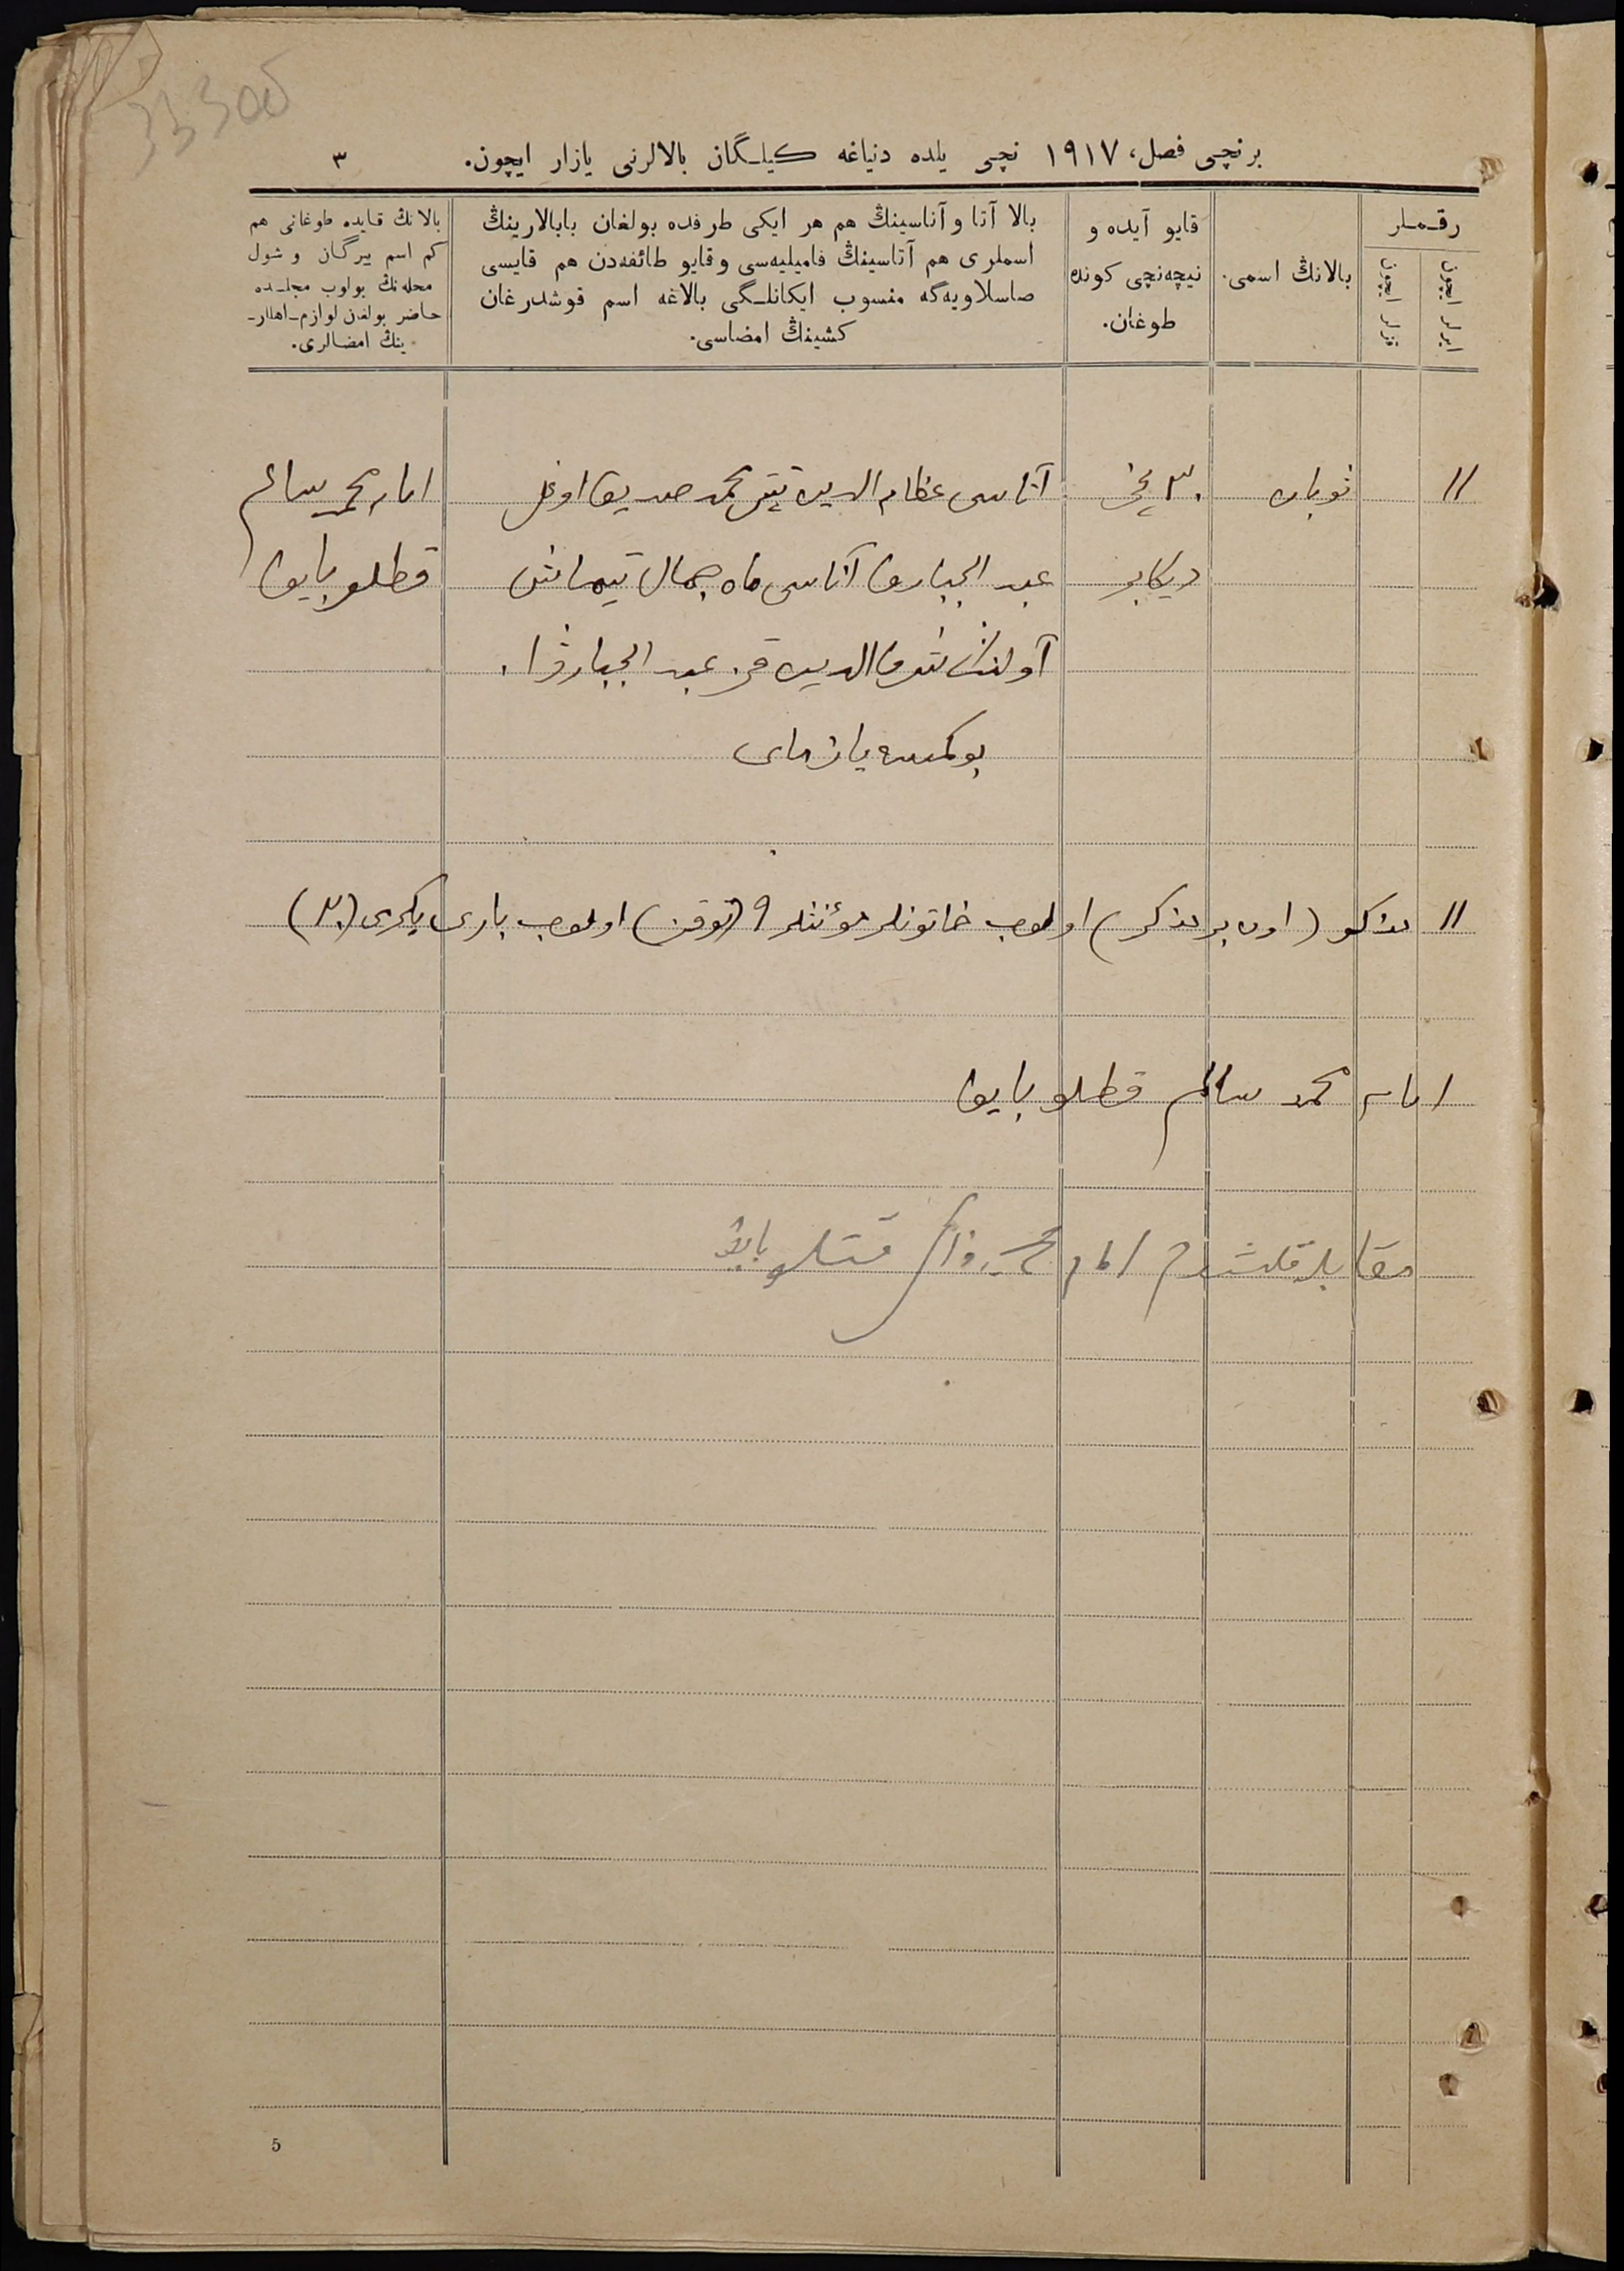 33 300б
برنچی فصل، ١٩١٧ نچی یلده دنیاغه کیلـگان بالالرنی یازار ایچون. ٣
رقـمـلر
ایرلر ایچون
قزلر ایچون
بالانڭ اسمی.
قایو آیده و
نیچه‌نچی کونده
طوغان.
بالا آتا و آناسینڭ هم هر ایکی طرفده بولغان بابالارینڭ
اسملری هم آتاسینڭ فامیلیه‌سی و قایو طائفه‌دن هم قایسی
صاسلاویه‌گه منسوب ایکانلـگی بالاغه اسم قوشدرغان
کشینڭ امضاسی.
بالانڭ قـایده طوغانی هم
کم اسم بیرگـان و شول
محله‌نڭ بولوب مجلـده
حاضر بولغان لوازم-اهللر-
ینڭ امضالری.
١١ ثوبان ٣٠ نچی آتاسی عظام الدین محمد صدیق اوغلی امام محمد سالم
دیکابر عبد الجباروف آناسی ماه جمال قطلوبایوف
الدین قزی عبد الجباروفا.
بو کمسه یازمای
١١ مذکر (اون بر مذکر) اولوب خاتونلر مؤنثلر ٩ (توقز) اولوب باری یکرمی (٢٠)
امام محمد سالم قطلوبایوف
مقابله قلشدم امام محمد ذاکر قتلوبایف
5